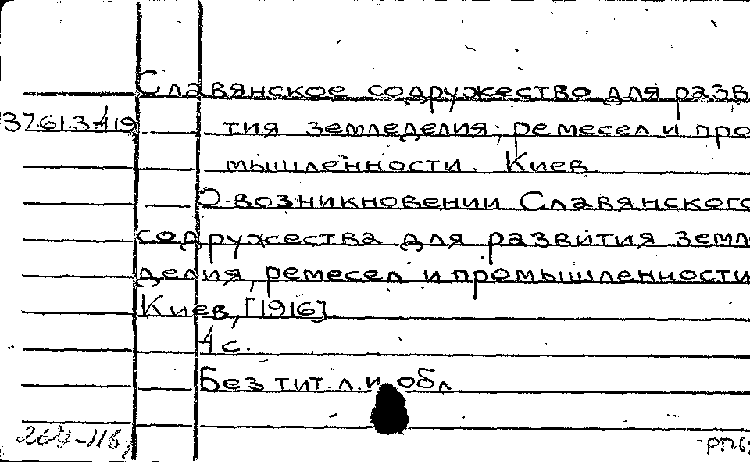 Славянское содружество для разв
37.613-419 тия земледелия, ремесел и про
мышленности. Киев
О возникновении Славянского
содружества для развития земл
делия, ремесел и промышленности
Киев, [1916]
4 с.
Без тит. л. и обл